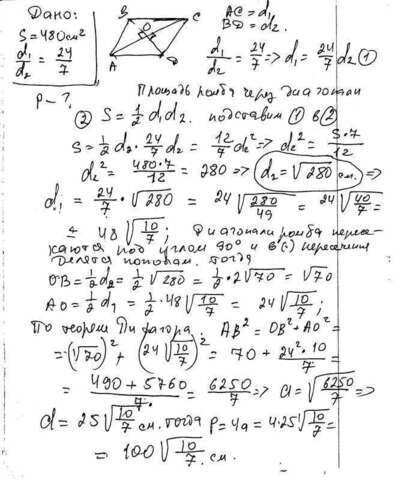 Дано:
S = 480 см²
d₁/d₂ = 24/7
P - ?
B C
O
A D
AC = d₁
BD = d₂.
d₁/d₂ = 24/7 => d₁ = 24/7 d₂ ①
Площадь ромба через диагонали
② S = 1/2 d₁d₂. подставим ① в ②
S = 1/2 d₂ · 24/7 d₂ = 12/7 d₂² => d₂² = S·7/12
d₂² = 480·7/12 = 280 => d₂ = √280 см. =>
d₁ = 24/7 · √280 = 24√(280/49) = 24√(40/7) =
= 48√(10/7); Диагонали ромба пересе-
каются под углом 90° и в (·) пересечения
делятся пополам. тогда
OB = 1/2 d₂ = 1/2 √280 = 1/2 · 2√70 = √70
AO = 1/2 d₁ = 1/2 · 48√(10/7) = 24√(10/7);
По теореме Пифагора. AB² = OB² + AO² =
= (√70)² + (24√(10/7))² = 70 + 24²·10/7 =
= (490 + 5760)/7 = 6250/7 => a = √(6250/7) =>
a = 25√(10/7) см. тогда P = 4a = 4·25√(10/7) =
= 100√(10/7) см.